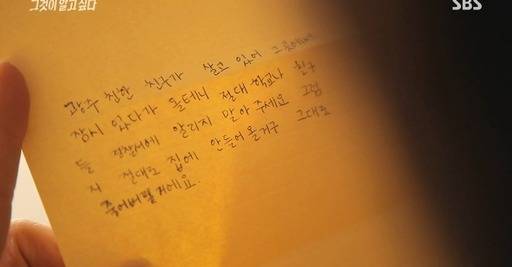 그것이 알고 싶다
SBS
광주 친한 친구가 살고 있어 그곳에서
잠시 있다가 올테니 절대 학교나 친구
들 경찰서에 알리지 말아 주세요 그럼
저 절대로 집에 안들어 올거구 그대로
죽어버릴 거에요.